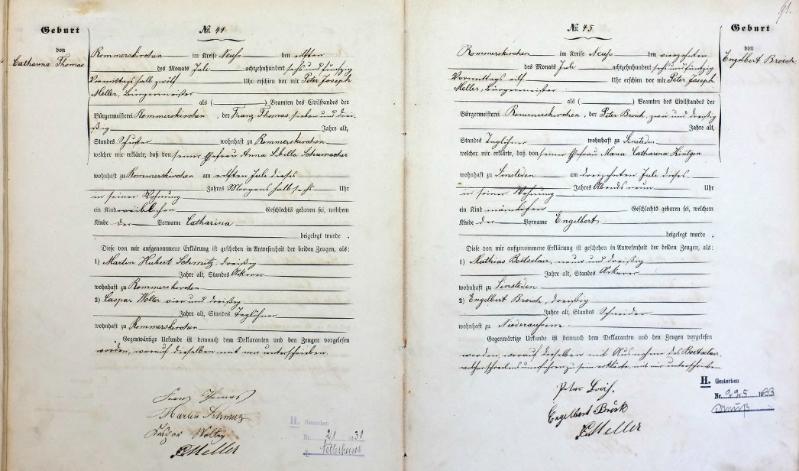 Geburt
von
Catharina Thomas
№ 44
Rommerskirchen im Kreise Neuss den elften
des Monats Juli achtzehnhundert sechsundfünfzig
Vormittags halb zwölf Uhr erschien vor mir Peter Joseph
Meller, Bürgermeister
als ( ) Beamten des Civilstandes der
Bürgermeisterei Rommerskirchen, der Franz Thomas, sieben und drei-
ßig Jahre alt,
Standes wohnhaft zu Rommerskirchen
welcher mir erklärte, daß von seiner Ehefrau Anna Sibilla Schumacher
wohnhaft zu Rommerskirchen am elften Juli dieses
Jahres Morgens halb Uhr
in seiner Wohnung
ein Kind weiblichen Geschlechts geboren sei, welchem
Kinde der Vorname Catharina
beigelegt wurde.
Diese von mir aufgenommene Erklärung ist geschehen in Anwesenheit der beiden Zeugen, als:
1) Martin Hubert Schmitz, dreißig
Jahre alt, Standes Ackerer
wohnhaft zu Rommerskirchen
2) Caspar Wolter vier und dreißig
Jahre alt, Standes Taglöhner
wohnhaft zu Rommerskirchen
Gegenwärtige Urkunde ist demnach dem Deklaranten und den Zeugen vorgelesen
worden, worauf dieselben mit mir unterschrieben.
Franz Thomas
Martin Schmitz
Caspar Wolter
Meller
Nr. 21 31
91.
№ 45
Geburt
von
Engelbert Broich
Rommerskirchen im Kreise Neuss den vierzehnten
des Monats Juli achtzehnhundert sechsundfünfzig
Vormittags elf Uhr erschien vor mir Peter Joseph
Meller, Bürgermeister
als ( ) Beamten des Civilstandes der
Bürgermeisterei Rommerskirchen, der Peter Broich, zwei und dreißig
Jahre alt,
Standes Taglöhner wohnhaft zu Sinsteden
welcher mir erklärte, daß von seiner Ehefrau Maria Catharina
wohnhaft zu Sinsteden am dreizehnten Juli dieses
Jahres Abends neun Uhr
in seiner Wohnung
ein Kind männlichen Geschlechts geboren sei, welchem
Kinde der Vorname Engelbert
beigelegt wurde.
Diese von mir aufgenommene Erklärung ist geschehen in Anwesenheit der beiden Zeugen, als:
1) Mathias neun und dreißig
Jahre alt, Standes Ackerer
wohnhaft zu Sinsteden
2) Engelbert Broich, dreißig
Jahre alt, Standes Schneider
wohnhaft zu Niederaussem
Gegenwärtige Urkunde ist demnach dem Deklaranten und den Zeugen vorgelesen
worden, worauf dieselben mit Ausnahme des
mit mir unterschrieben
Peter
Engelbert
Meller
II. Gestorben
Nr. 225 1933
Neuß